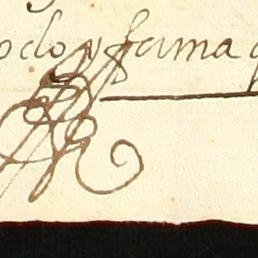 odo y forma q